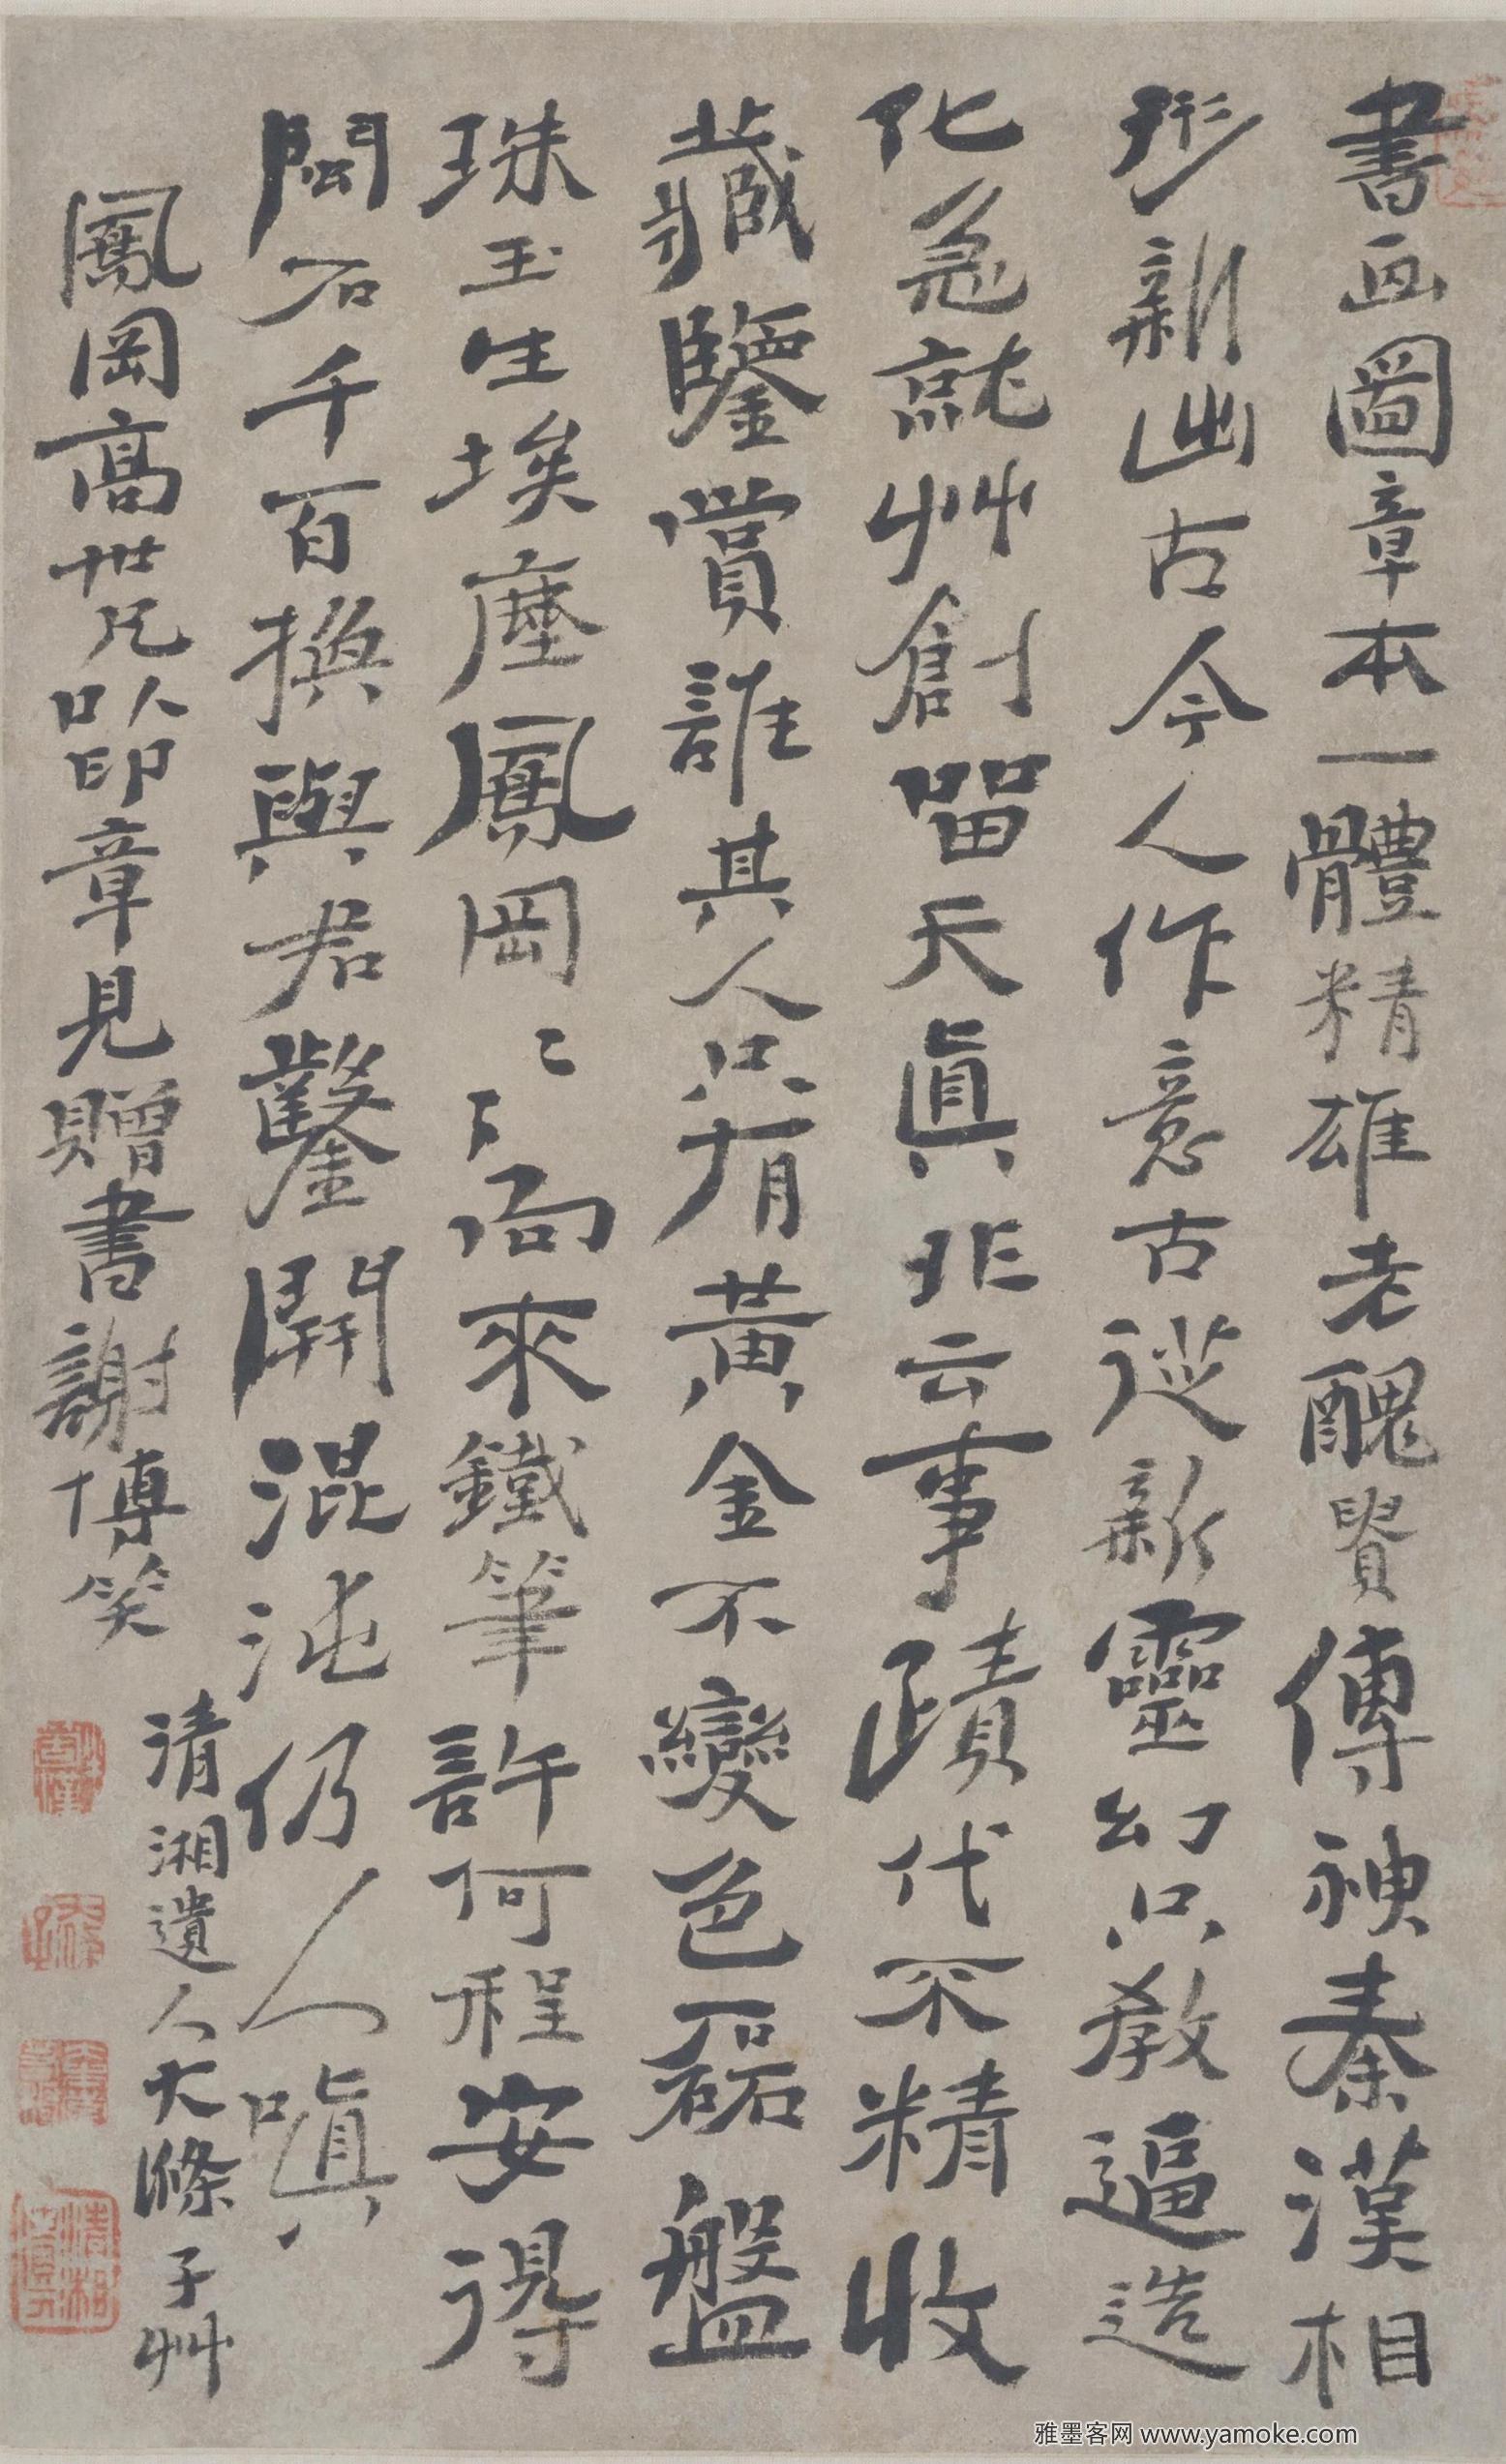 書画圖章本一體精雄老醜貴傳神秦漢相
形新出古今人作意古從新靈幻只教逼造
化急就艸創留天真非云事蹟代不精收
藏鑒賞誰其人只有黃金不變色磊盤
珠玉生埃塵鳳岡〻〻下向來鐵筆許何程安得
閎石千百換與君鑿開混沌仍人嗔
鳳岡高世兄以印章見贈書謝博笑
清湘遺人大滌子艸
清湘
雅墨客网 www.yamoke.com